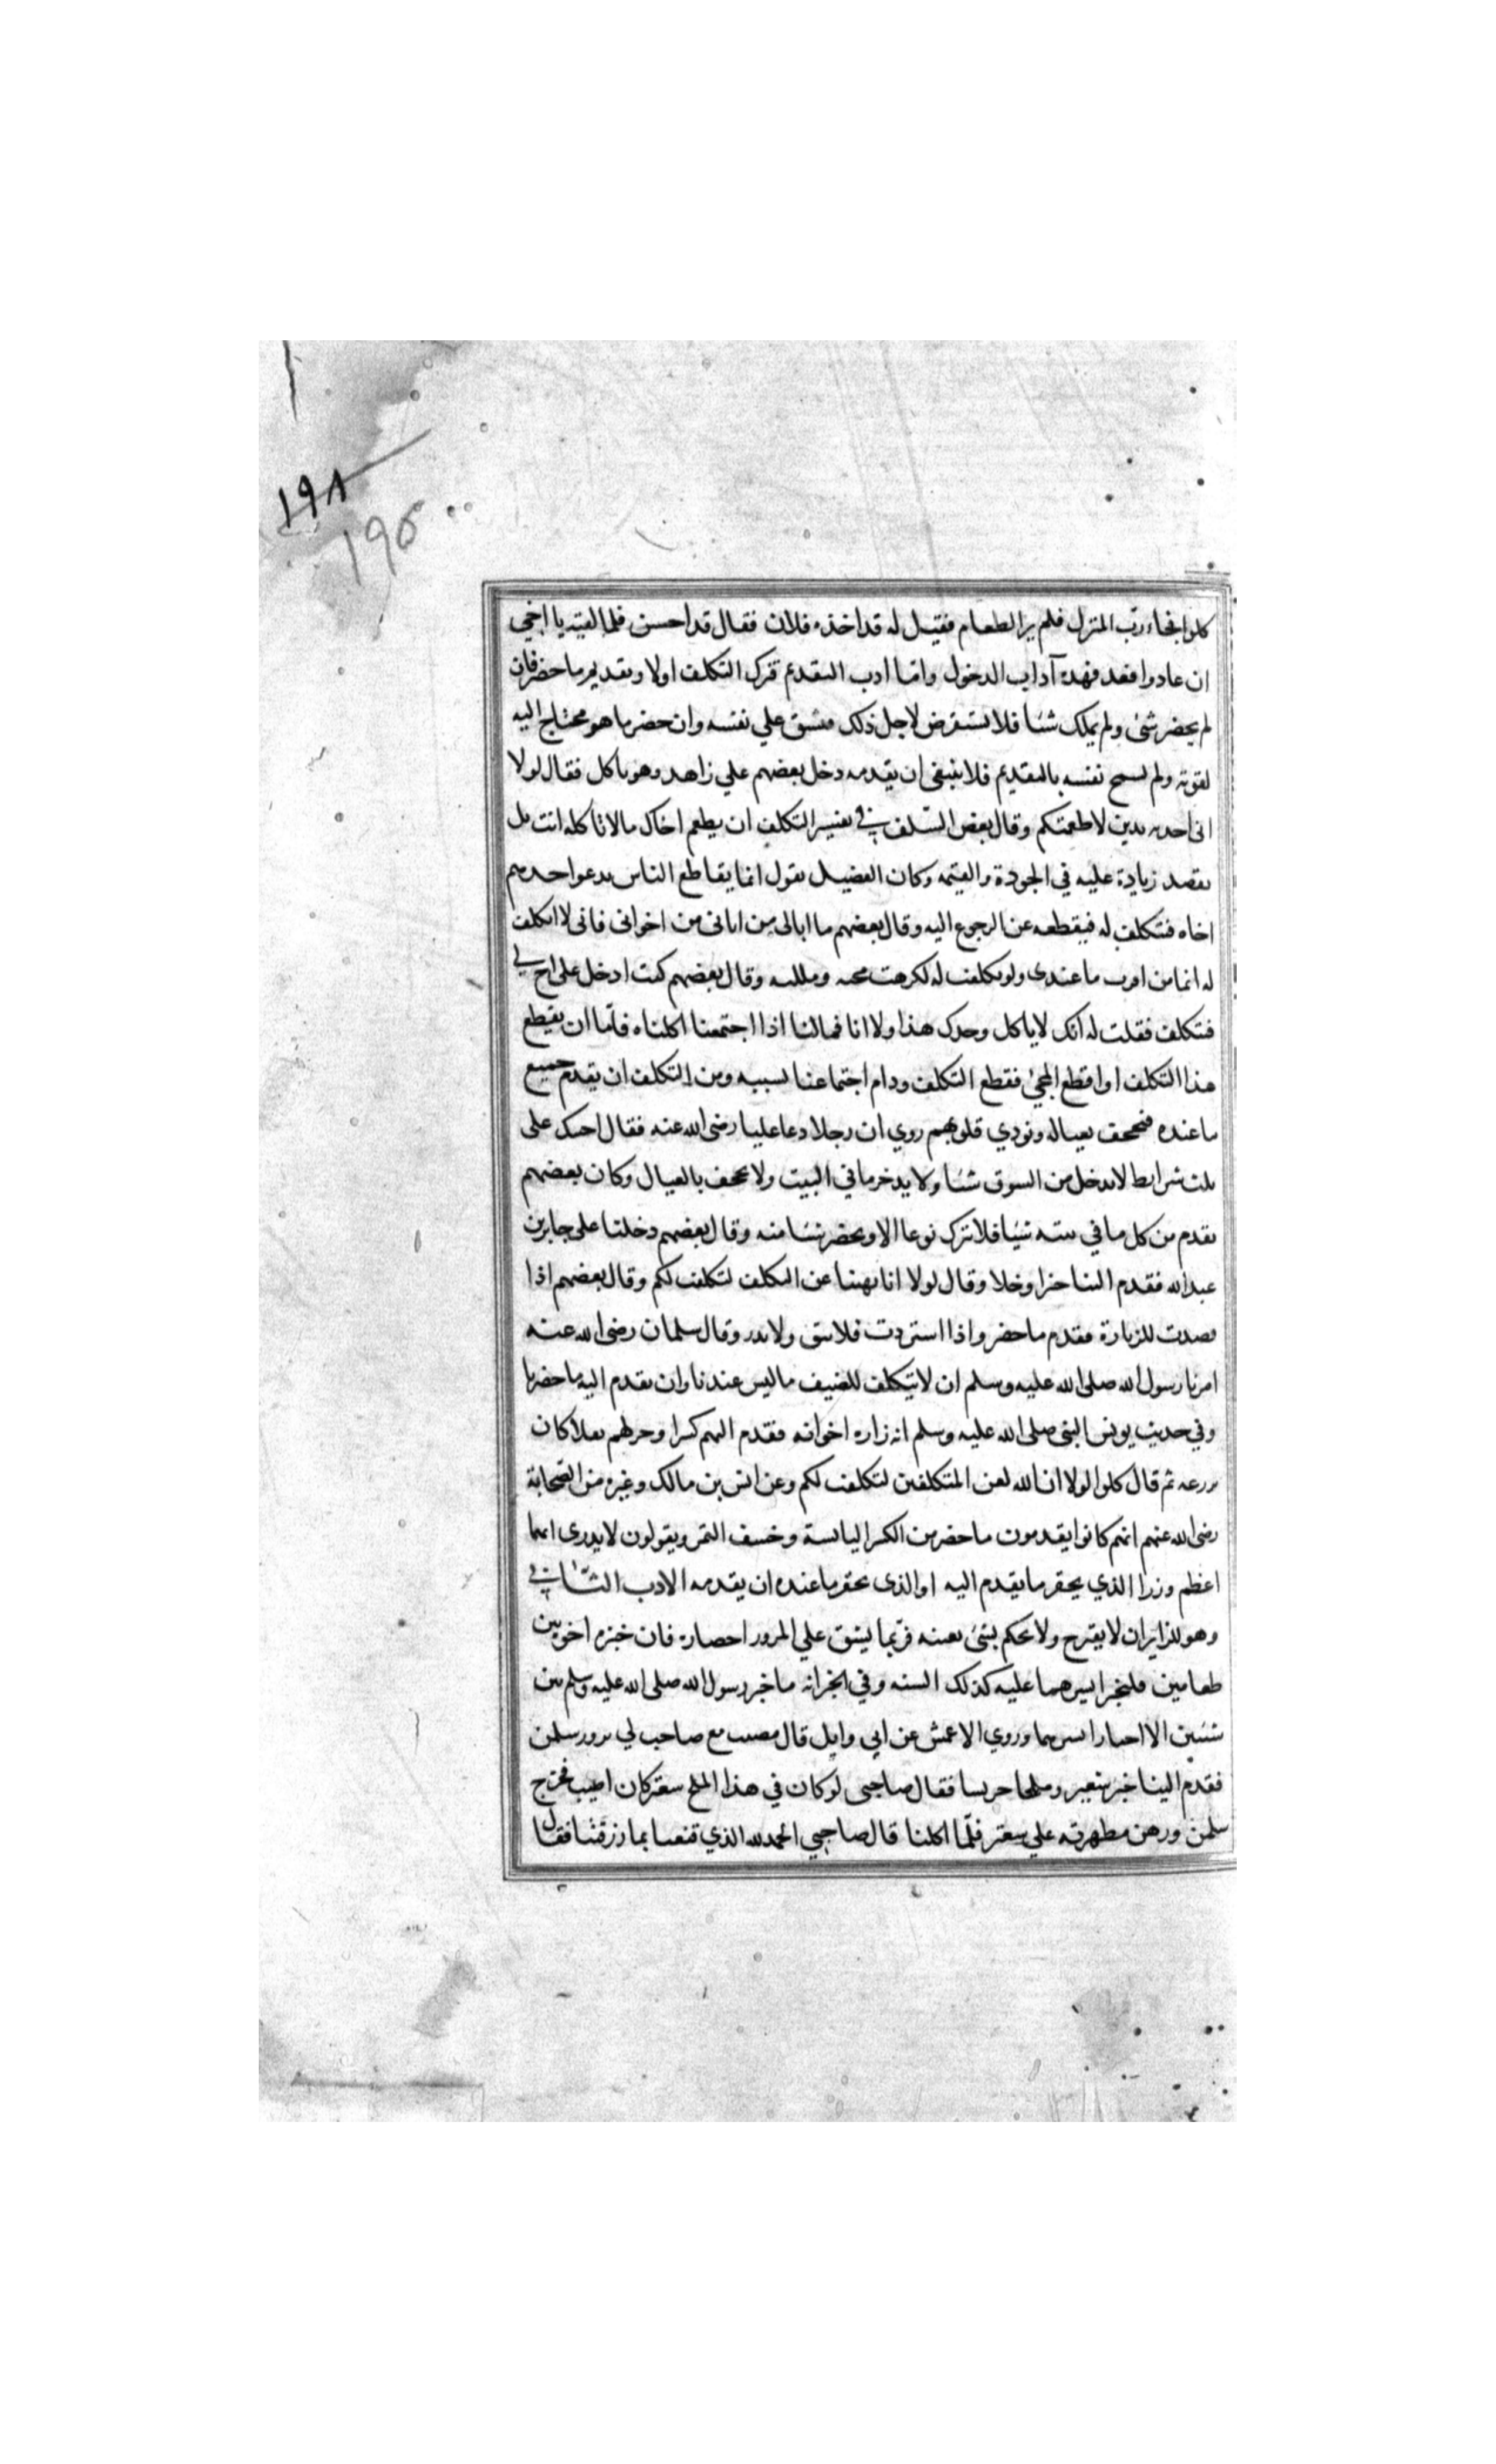 ١٩٨
١٩٥
كلوا فجاء رب المنزل فلم ير الطعام فقيل له قد اخذه فلان فقال قد احسن فلما لقيه يا اخي
ان عادوا فعد فهذه آداب الدخول واما ادب التقديم فترك التكلف اولا وتقديم ما حضر فان
لم يحضر شئ ولم يملك شيا فلا يستقرض لاجل ذلك فيشق علي نفسه وان حضر ما هو محتاج اليه
لقوته ولم تسمح نفسه بالتقديم فلا ينبغي ان يقدمه دخل بعضهم علي زاهد وهو ياكل فقال لولا
اني اخذته بدين لاطعمتكم وقال بعض السلف في تفسير التكلف ان يطعم اخاك مالا تاكله انت بل
تقصد زيادة عليه في الجودة والقيمه وكان الفضيل يقول انما يقاطع الناس يدعوا احدهم
اخاه فتكلف له فيقطعه عن الرجوع اليه وقال بعضهم ما ابالي من اتاني من اخواني فاني لا اتكلف
له انما من اقرب ما عندي ولو تكلفت له لكرهت محبه ومللته وقال بعضهم كنت ادخل على اخ لي
فتكلف فقلت له انك لا ياكل وحدك هذا ولا انا فمالنا اذا اجتمعنا اكلناه فاما ان يقطع
هذا التكلف او اقطع المجئ فقطع التكلف ودام اجتماعنا لسببه ومن التكلف ان يقدم جميع
ما عنده فيجحف بعياله ونودي قلوبهم روي ان رجلا دعا عليا رضى الله عنه فقال احبك على
ثلث شرايط لا يدخل من السوق شيا ولا يدخر ما في البيت ولا تجحف بالعيال وكان بعضهم
يقدم من كل ما في بيته شيا فلا يترك نوعا الا ويحضر شيا منه وقال بعضهم دخلنا على جابر بن
عبد الله فقدم الينا خبزا وخلا وقال لولا انا نهينا عن التكلف لتكلفت لكم وقال بعضهم اذا
قصدت للزيارة فقدم ما حضر واذا استزدت فلا تبق ولا تذر وقال سلمان رضى الله عنه
امرنا رسول الله صلى الله عليه وسلم ان لا يتكلف للضيف ما ليس عندنا وان نقدم اليه ما حضرنا
وفي حديث يونس النبي صلى الله عليه وسلم انه زاره اخوانه فقدم اليهم كسرا وجزلهم بقلا كان
يزرعه ثم قال كلوا لولا ان الله لعن المتكلفين لتكلفت لكم وعن انس بن مالك وغيره من الصحابة
رضى الله عنهم انهم كانوا يقدمون ما حضر من الكسر اليابسة وخسف التمر ويقولون لا يدرى ايهما
اعظم وزرا الذي يحقر ما يقدم اليه او الذي يحقر ما عنده ان يقدمه الادب الثاني
وهو للزاير ان لا يقترح ولا يحكم بشئ بعينه فربما يشق علي المزور احضاره فان خيره اخوه بين
طعامين فليختر ايسرهما عليه كذلك السنه وفي الخبر انه ما خير رسول الله صلى الله عليه وسلم بين
شيئين الا اختار ايسرهما وروي الاعمش عن ابي وايل قال مضيت مع صاحب لي نزور سلمن
فقدم الينا خبز شعير وملحا جريشا فقال صاحبي لو كان في هذا الملح سعتر كان اطيب فخرج
سلمن ورهن مطهرته علي سعتر فلما اكلنا قال صاحبي الحمد لله الذي قنعنا بما رزقنا فقال